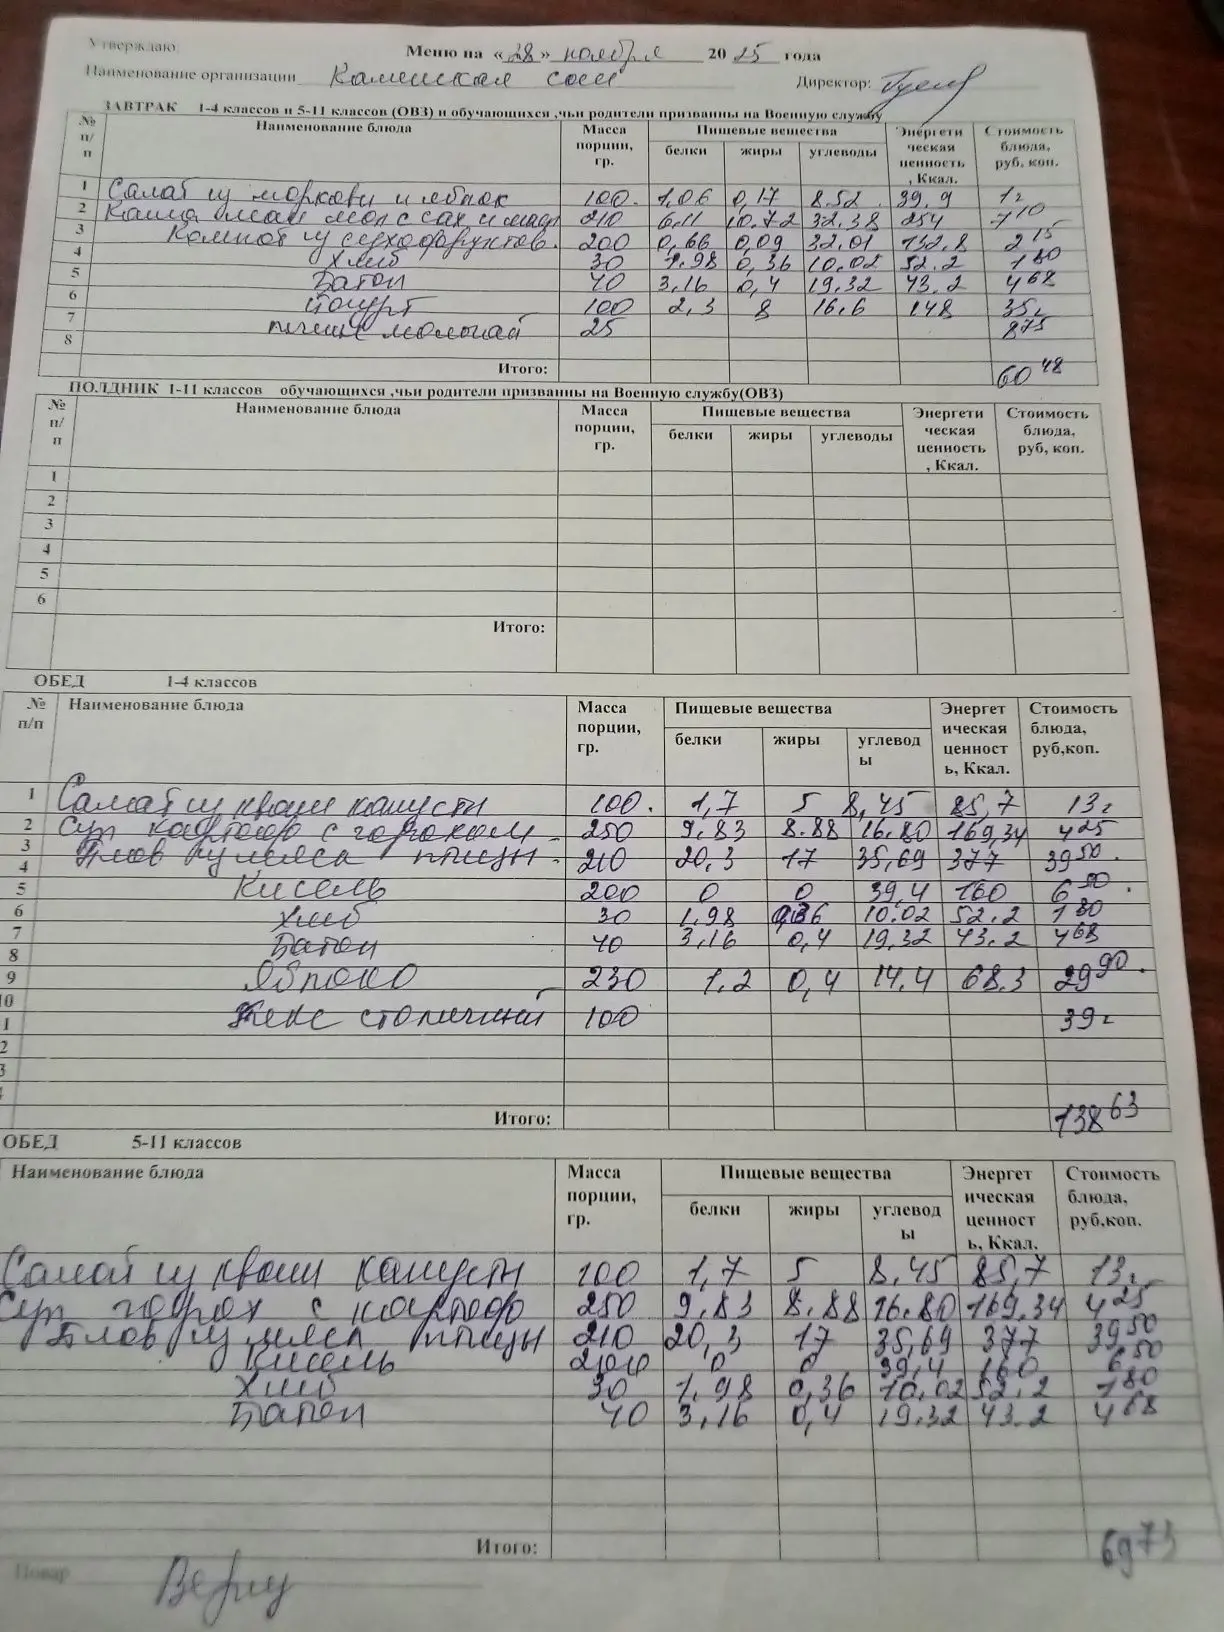 Утверждаю: Меню на «28» ноября 2025 года
Наименование организации Каменская сош Директор:
ЗАВТРАК 1-4 классов и 5-11 классов (ОВЗ) и обучающихся ,чьи родители призваны на Военную службу
№ п/п Наименование блюда Масса порции, гр. Пищевые вещества Энергети ческая ценность , Ккал. Стоимость блюда, руб, коп.
белки жиры углеводы
1 Салат из моркови и яблок 100. 1,06 0,17 8.52 39,9 12
2 Каша ман мол с сах и масл 210 6,11 10,72 32,38 254 7 10
3 Компот из сухофруктов. 200 0,66 0,09 32,01 132,8 2 15
4 Хлеб 30 1.98 0,36 10,02 52.2 1 80
5 Батон 40 3,16 0,4 19,32 43.2 4 68
6 Йогурт 100 2,3 8 16,6 148 35
7 25 8 75
8
Итого: 60 48
ПОЛДНИК 1-11 классов обучающихся ,чьи родители призванны на Военную службу(ОВЗ)
№ п/п Наименование блюда Масса порции, гр. Пищевые вещества Энергети ческая ценность , Ккал. Стоимость блюда, руб, коп.
белки жиры углеводы
1
2
3
4
5
6
Итого:
ОБЕД 1-4 классов
№ п/п Наименование блюда Масса порции, гр. Пищевые вещества Энергет ическая ценност ь, Ккал. Стоимость блюда, руб,коп.
белки жиры углевод ы
1 Салат из кваш капусты 100. 1,7 5 8,45 85,7 13
2 Суп картоф с горохом 250 9,83 8.88 16.80 169,34 4 25
3 Плов из мяса птицы 210 20,3 17 35,69 377 39 50
4 Кисель 200 0 0 39,4 160 6 50
5
6 Хлеб 30 1,98 0,36 10.02 52.2 1 80
7 Батон 40 3,16 0,4 19,32 43.2 4 68
8
9 Яблоко 230 1,2 0,4 14,4 68.3 29 90
10
1 Кекс столичный 100 39
2
3
4
Итого: 138 63
ОБЕД 5-11 классов
Наименование блюда Масса порции, гр. Пищевые вещества Энергет ическая ценност ь, Ккал. Стоимость блюда, руб,коп.
белки жиры углевод ы
Салат из кваш капусты 100 1,7 5 8,45 85,7 13
Суп горох с картоф 250 9,83 8.88 16.80 169,34 4 25
Плов из мяса птицы 210 20,3 17 35,69 377 39 50
Кисель 200 0 0 39,4 160 6 50
Хлеб 30 1,98 0,36 10,02 52,2 1 80
Батон 40 3,16 0,4 19,32 43.2 4 68
Итого: 69 73
Повар